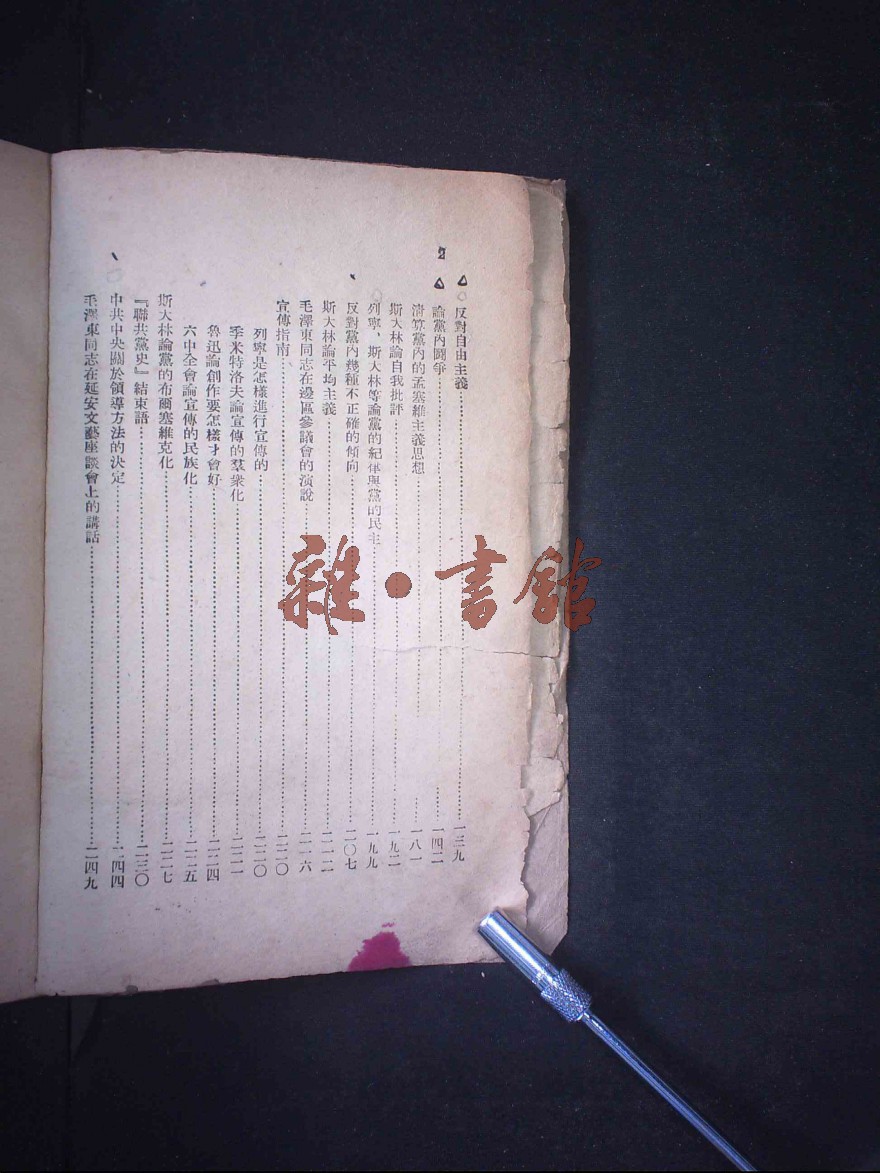 反對自由主義……一三九
論黨內鬭爭……一四二
清算黨內的孟塞維主義思想……一八一
斯大林論自我批評……一九二
列寧、斯大林等論黨的紀律與黨的民主……一九九
反對黨內幾種不正確的傾向……二〇七
斯大林論平均主義……二一二
毛澤東同志在邊區參議會的演說……二一六
宣傳指南……二二〇
列寧是怎樣進行宣傳的……二二〇
季米特洛夫論宣傳的羣衆化……二二一
魯迅論創作要怎樣才會好……二二四
六中全會論宣傳的民族化……二二五
斯大林論黨的布爾塞維克化……二二七
『聯共黨史』結束語……二三〇
中共中央關於領導方法的決定……二四四
毛澤東同志在延安文藝座談會上的講話……二四九
雜·書館